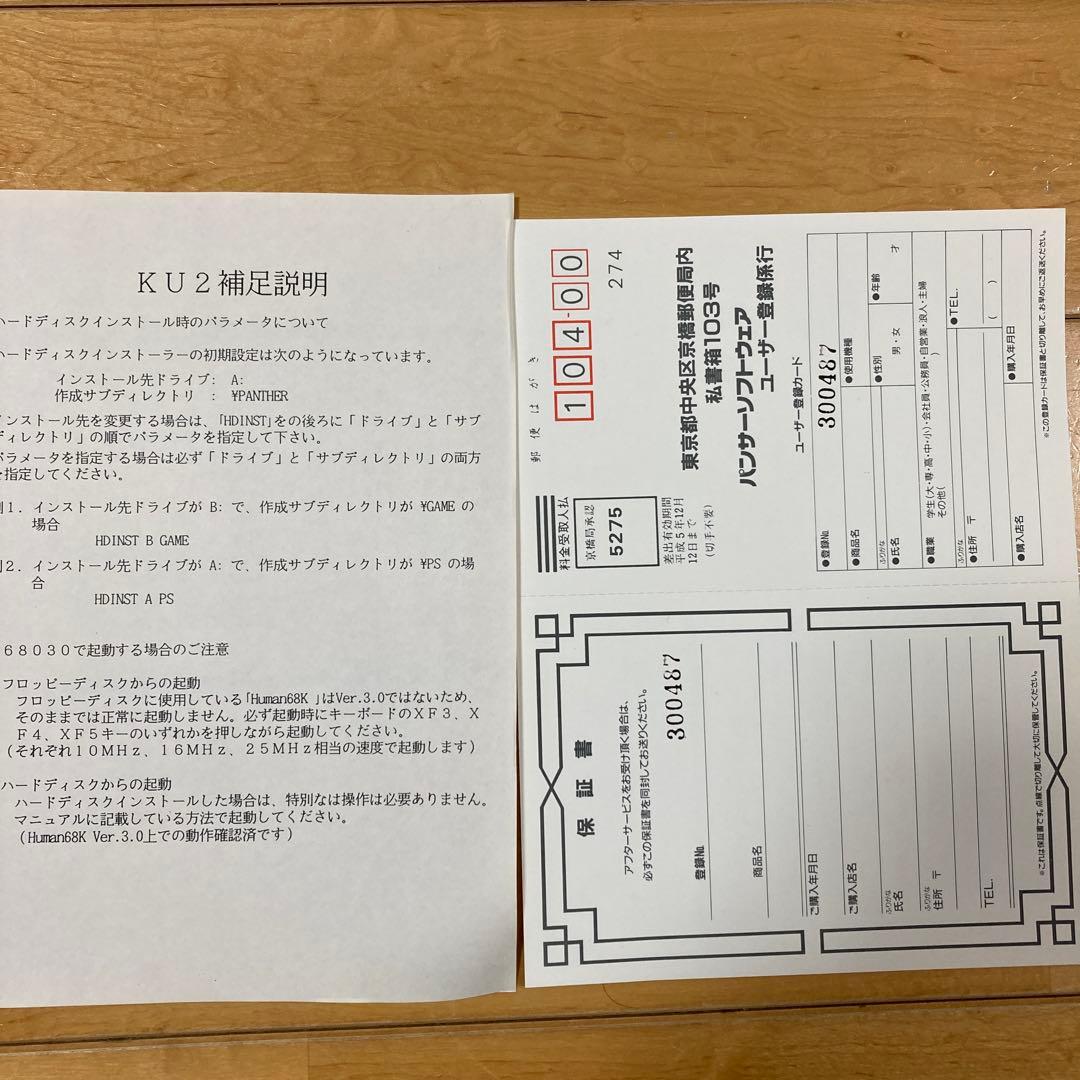 KU2補足説明
ハードディスクインストール時のパラメータについて
ハードディスクインストーラーの初期設定は次のようになっています。
インストール先ドライブ: A:
作成サブディレクトリ : ¥PANTHER
インストール先を変更する場合は、「HDINST」をの後ろに「ドライブ」と「サブ
ディレクトリ」の順でパラメータを指定して下さい。
パラメータを指定する場合は必ず「ドライブ」と「サブディレクトリ」の両方
を指定してください。
例1. インストール先ドライブが B: で、作成サブディレクトリが ¥GAME の
場合
HDINST B GAME
例2. インストール先ドライブが A: で、作成サブディレクトリが ¥PS の場
合
HDINST A PS
68030で起動する場合のご注意
フロッピーディスクからの起動
フロッピーディスクに使用している「Human68K 」はVer.3.0ではないため、
そのままでは正常に起動しません。必ず起動時にキーボードのXF3、X
F4、XF5キーのいずれかを押しながら起動してください。
(それぞれ10MHz、16MHz、25MHz相当の速度で起動します)
ハードディスクからの起動
ハードディスクインストールした場合は、特別なは操作は必要ありません。
マニュアルに記載している方法で起動してください。
(Human68K Ver.3.0上での動作確認済です)
郵便はがき
104-00
274
料金受取人払
京橋局承認
5275
差出有効期間
平成5年12月
12日まで
(切手不要)
東京都中央区京橋郵便局内
私書箱103号
パンサーソフトウェア
ユーザー登録係行
ユーザー登録カード
●登録№ 300487
●商品名 ●使用機種
ふりがな
●氏名 ●性別 男・女 ●年齢 才
●職業 学生(大・専・高・中・小)・会社員・公務員・自営業・浪人・主婦
その他( )
ふりがな
●住所 〒 ●TEL. ( )
●購入店名 ●購入年月日
※この登録カードは保証書と切り離して、お早めにご返送ください。
保証書
アフターサービスをお受け頂く場合は、
必ずこの保証書を同封してお送りください。
登録№ 300487
商品名
ご購入年月日
ご購入店名
ふりがな
氏名
ふりがな
住所 〒
TEL.
※これは保証書です。点線で切り離して大切に保管してください。